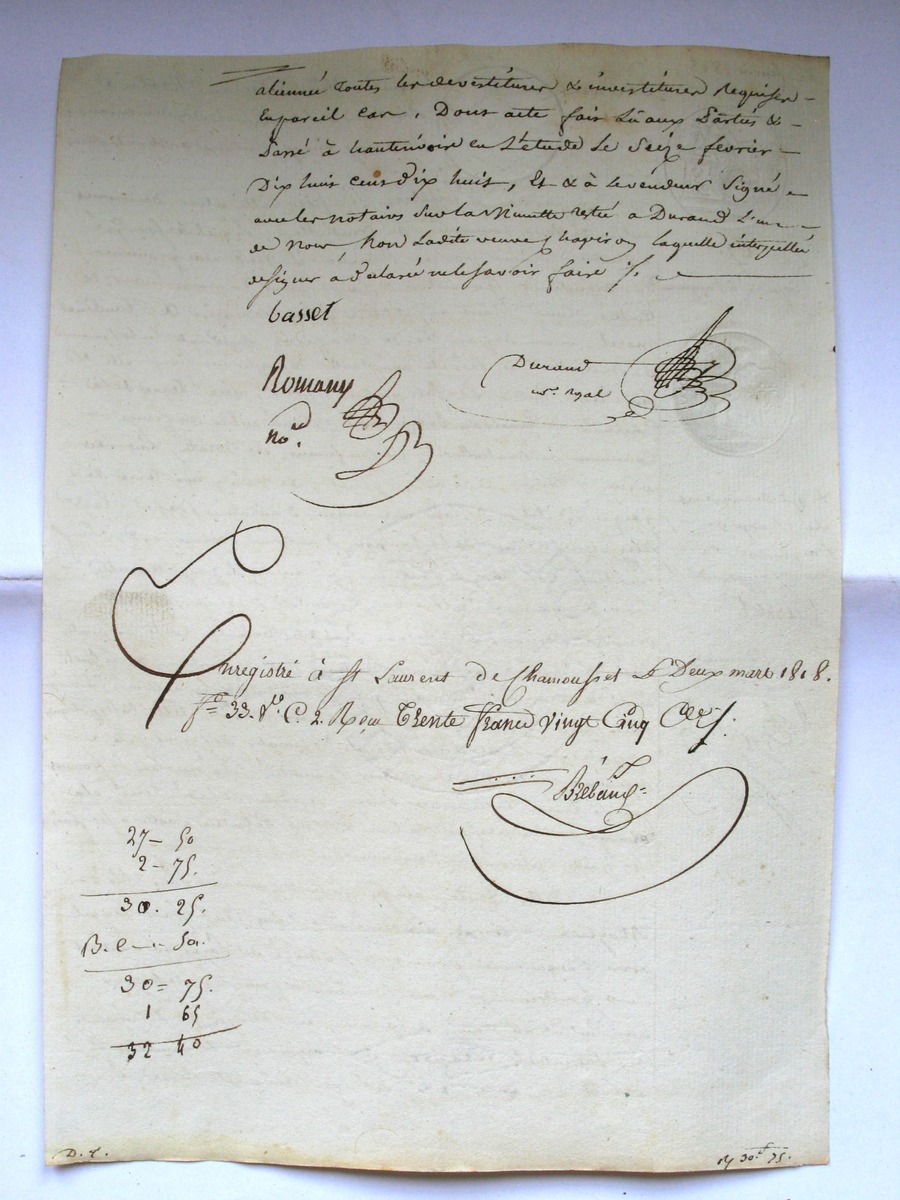 alienneé toutes les devestitures & investitures Requises
En pareil cas, Dont acte fait Lu aux Parties &
Passé à hauterivoire en L'étude Le Seize fevrier
Dix huit cent dix huit, Et & à le vendeur Signé
avec les notaires Sur la Minutte resté a Durand L'un
de nous Non Ladite veuve Chapiron laquelle interpellée
de signer à declaré ne le savoir faire ./.
Casset
Romany
Durand
no. royal
no.re
Enregistré à St Laurent de Chamousset Le Deux mars 1818.
fo 33. Vo C. 2. Reçu Trente francs vingt Cinq Ces/.
Brebaud
27 — 50
2 — 75.
30. 25.
50.
30 = 75.
1 65
32 40
D. r.
30f 75.